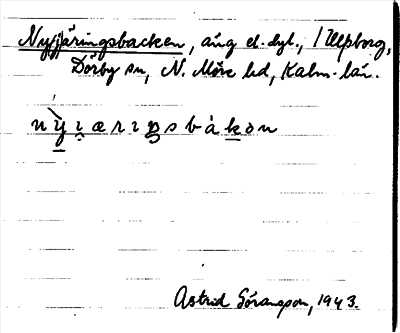 Nygäringsbacken, äng el. dyl., 1 Ulpborg,
Dörby sn, N. Möre hd, Kalm. län.
nỳɪærɪŋsbàkon
Astrid Göransson, 1943.